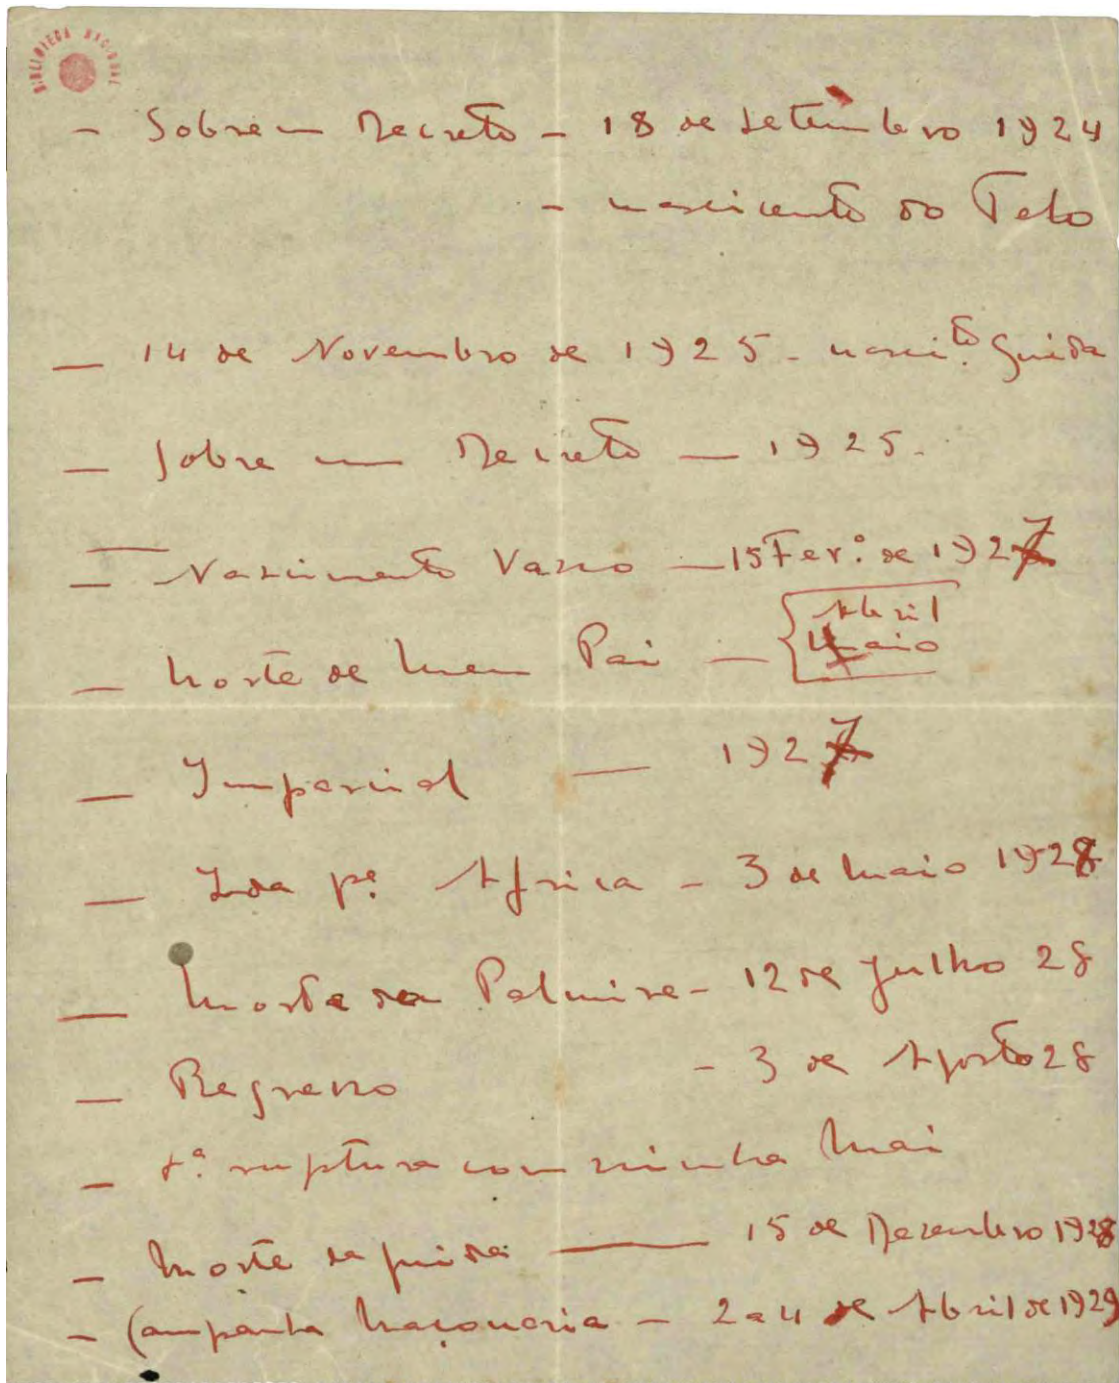 BIBLIOTECA NACIONAL
- Sobre um Decreto - 18 de Setembro 1924
- nascimento do Telo
- 14 de Novembro de 1925 - nasci.to Guida
- Sobre um Decreto - 1925.
- Nascimento Vasco - 15 Fer.º de 1927
- Morte de Meu Pai - Abril
Maio
- Imparcial - 1927
- Ida p.ª Africa - 3 de Maio 1928
- Morte da Palmira - 12 de Julho 28
- Regresso - 3 de Agosto 28
- 1.ª ruptura com minha Mai
- Morte da Guida - 15 de Dezembro 1928
- Campanha Maçonaria - 2 a 4 de Abril de 1929